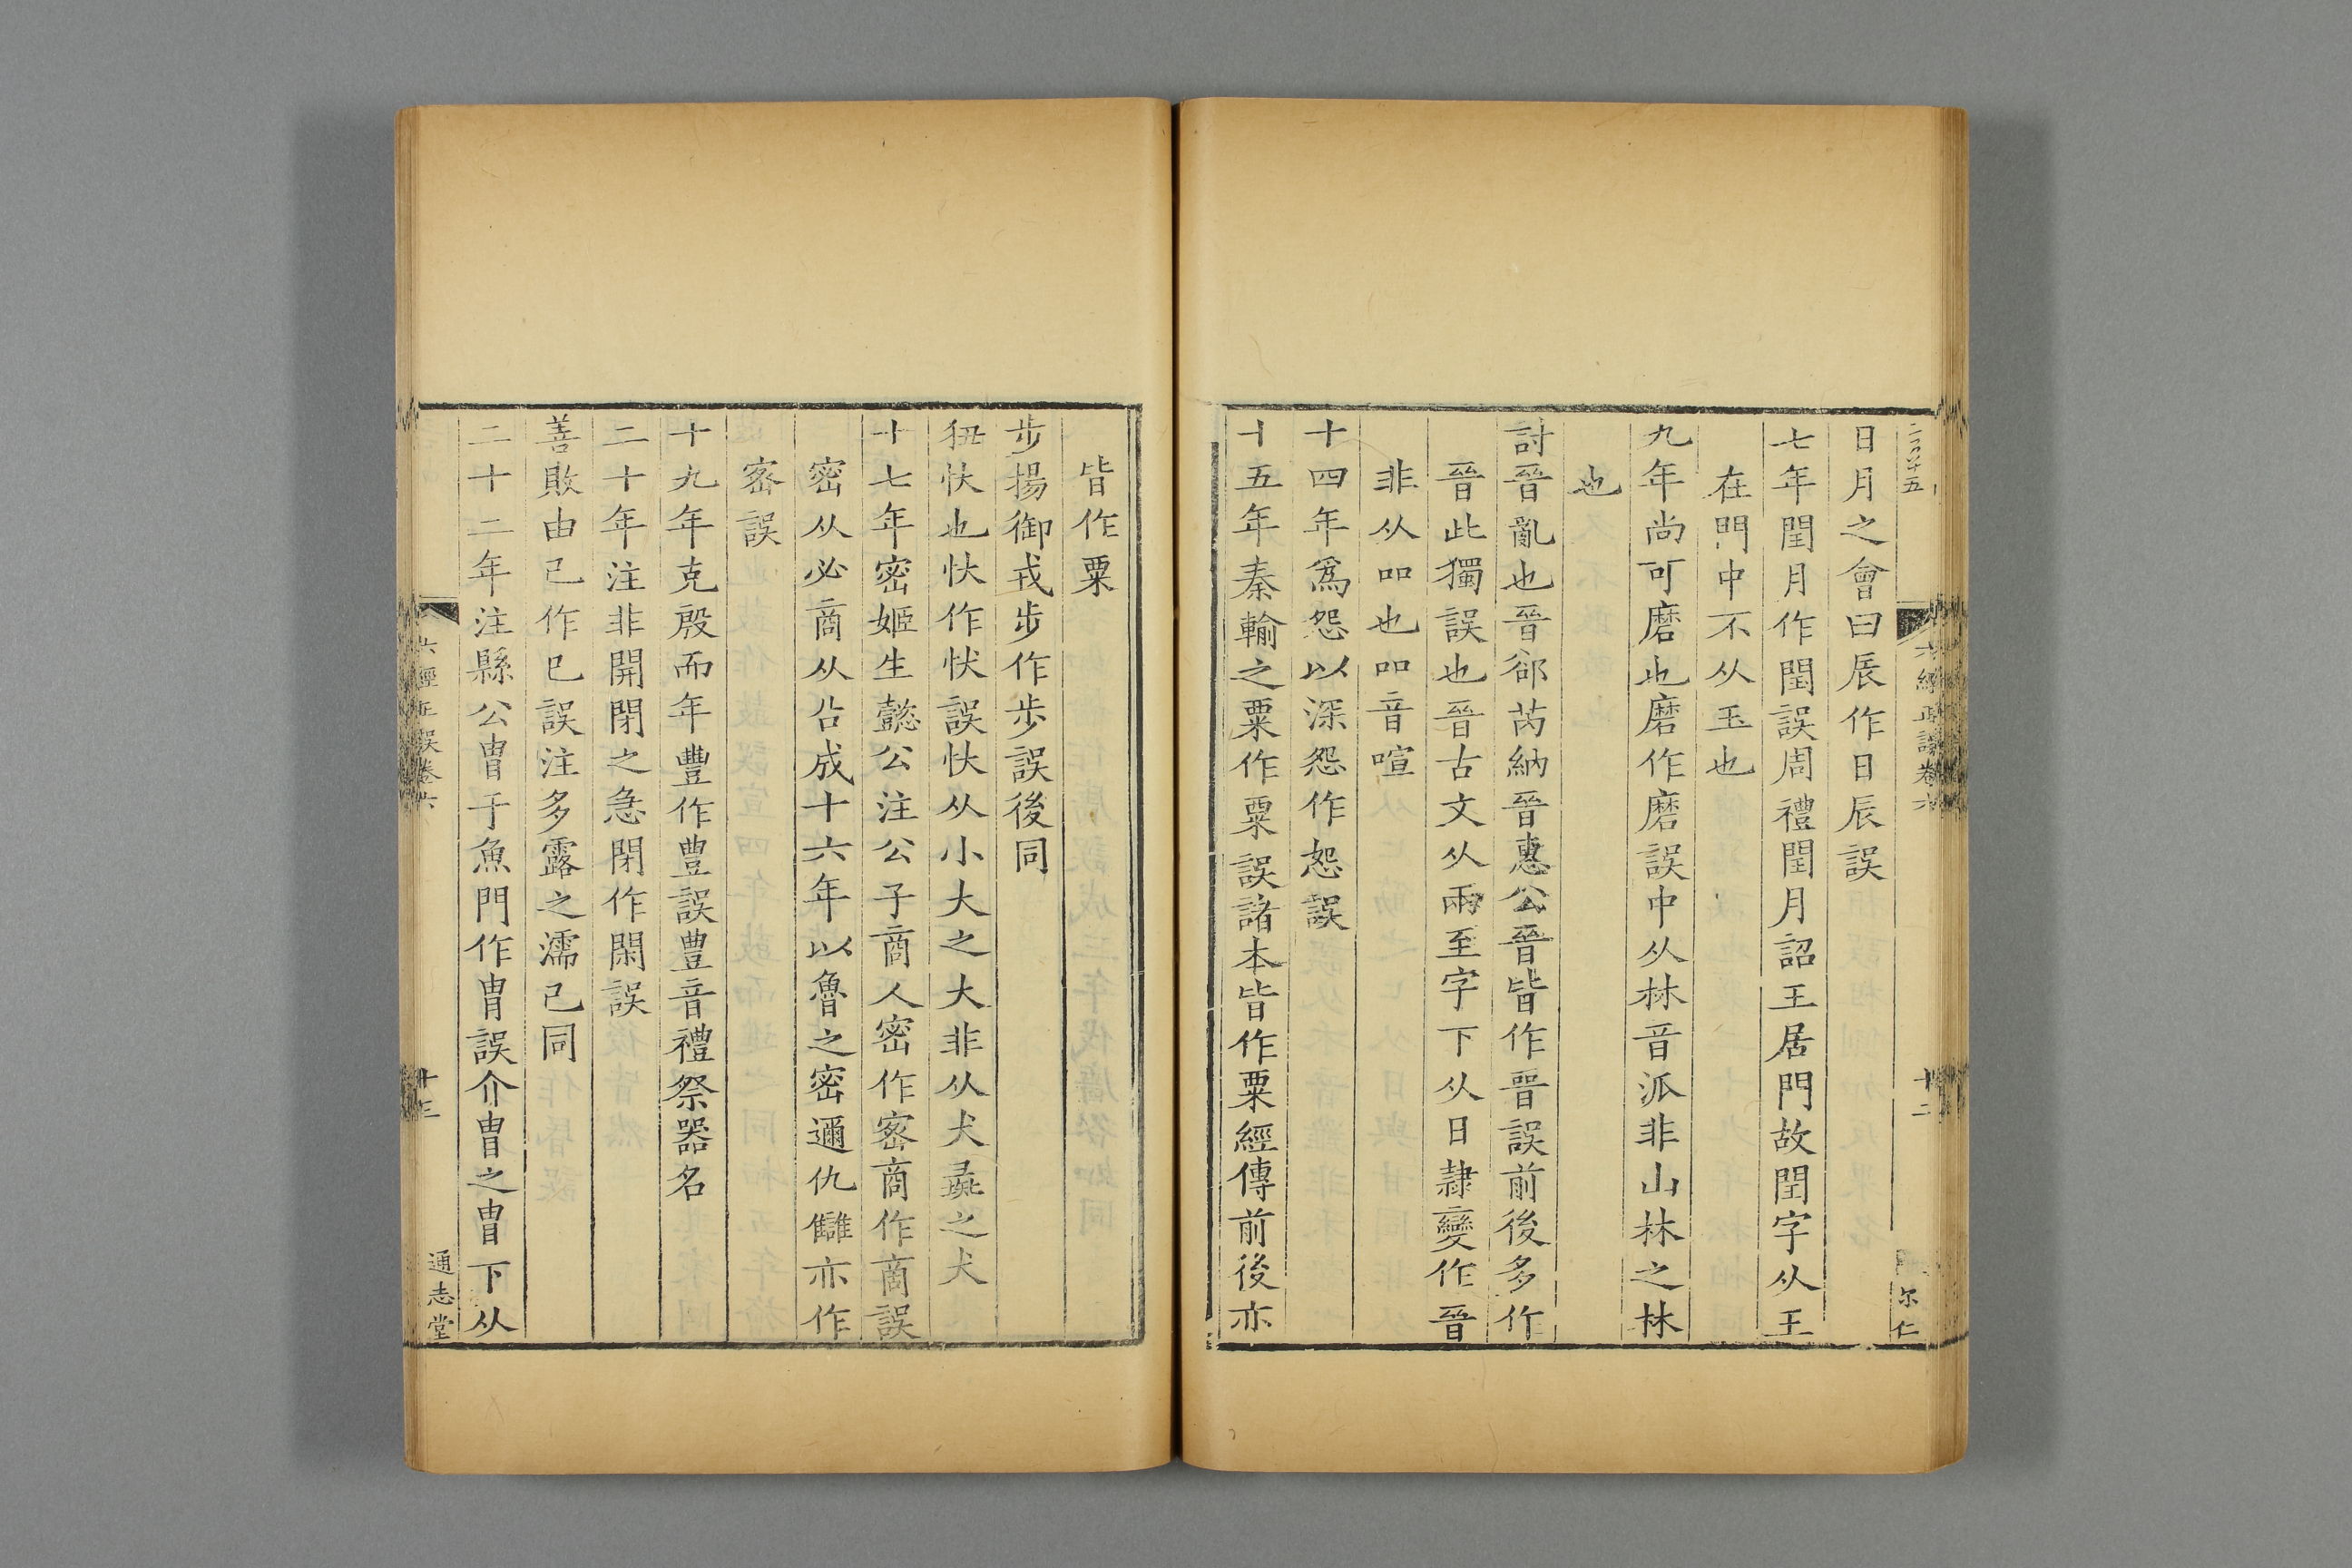 日月之會曰辰作日辰誤
七年閏月作閠誤周禮閏月詔王居門故閏字从王
在門中不从玉也
九年尚可磨也磨作磨誤中从林音派非山林之林
也
討晉亂也晉郤芮納晉惠公晉皆作晋誤前後多作
晉此獨誤也晉古文从兩至字下从日隷變作晉
非从吅也吅音喧
十四年爲怨以深怨作怨誤
十五年秦輸之粟作粟誤諸本皆作粟經傳前後亦
六經正誤卷六
十二
尔仁
皆作粟
步揚御戎步作歩誤後同
狃忕也忕作忲誤忕从小大之大非从犬彘之犬
十七年密姬生懿公注公子商人密作宻商作啇誤
密从必商从㕣成十六年以魯之密邇仇讎亦作
宻誤
十九年克殷而年豐作豊誤豊音禮祭器名
二十年注非開閉之急閉作閇誤
善敗由己作巳誤注多露之濡己同
二十二年注縣公冑于魚門作胄誤介冑之冑下从
六經正誤卷六
十三
通志堂